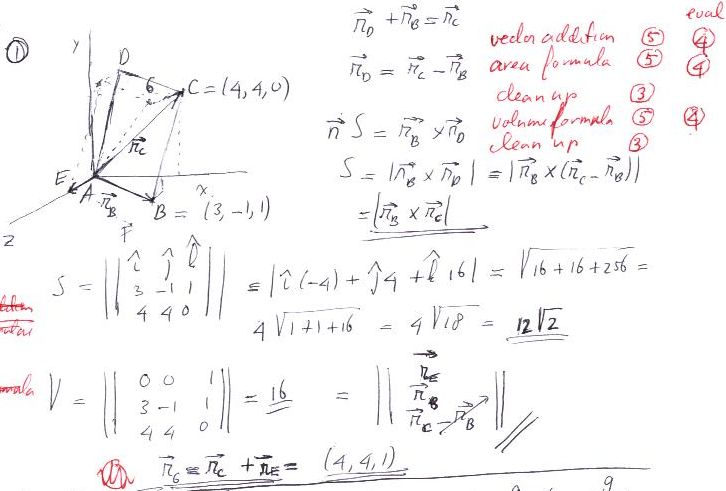 ①
y
D
6
C = (4,4,0)
r⃗_C
E
A
r⃗_B
x
B = (3,-1,1)
F
z
r⃗_D + r⃗_B = r⃗_C
r⃗_D = r⃗_C - r⃗_B
n⃗ S = r⃗_B × r⃗_D
S = |r⃗_B × r⃗_D| = |r⃗_B × (r⃗_C - r⃗_B)|
= |r⃗_B × r⃗_C|
eval
vector addition ⑤ ④
area formula ⑤ ④
clean up ③
volume formula ⑤ ④
clean up ③
S = || î ĵ k̂
3 -1 1
4 4 0 || = |î(-4) + ĵ4 + k̂ 16| = √16+16+256 =
4√1+1+16 = 4√18 = 12√2
V = || 0 0 1
3 -1 1
4 4 0 || = 16 = || r⃗_E
r⃗_B
r⃗_C - r⃗_B ||
r⃗_G = r⃗_C + r⃗_E = (4,4,1)